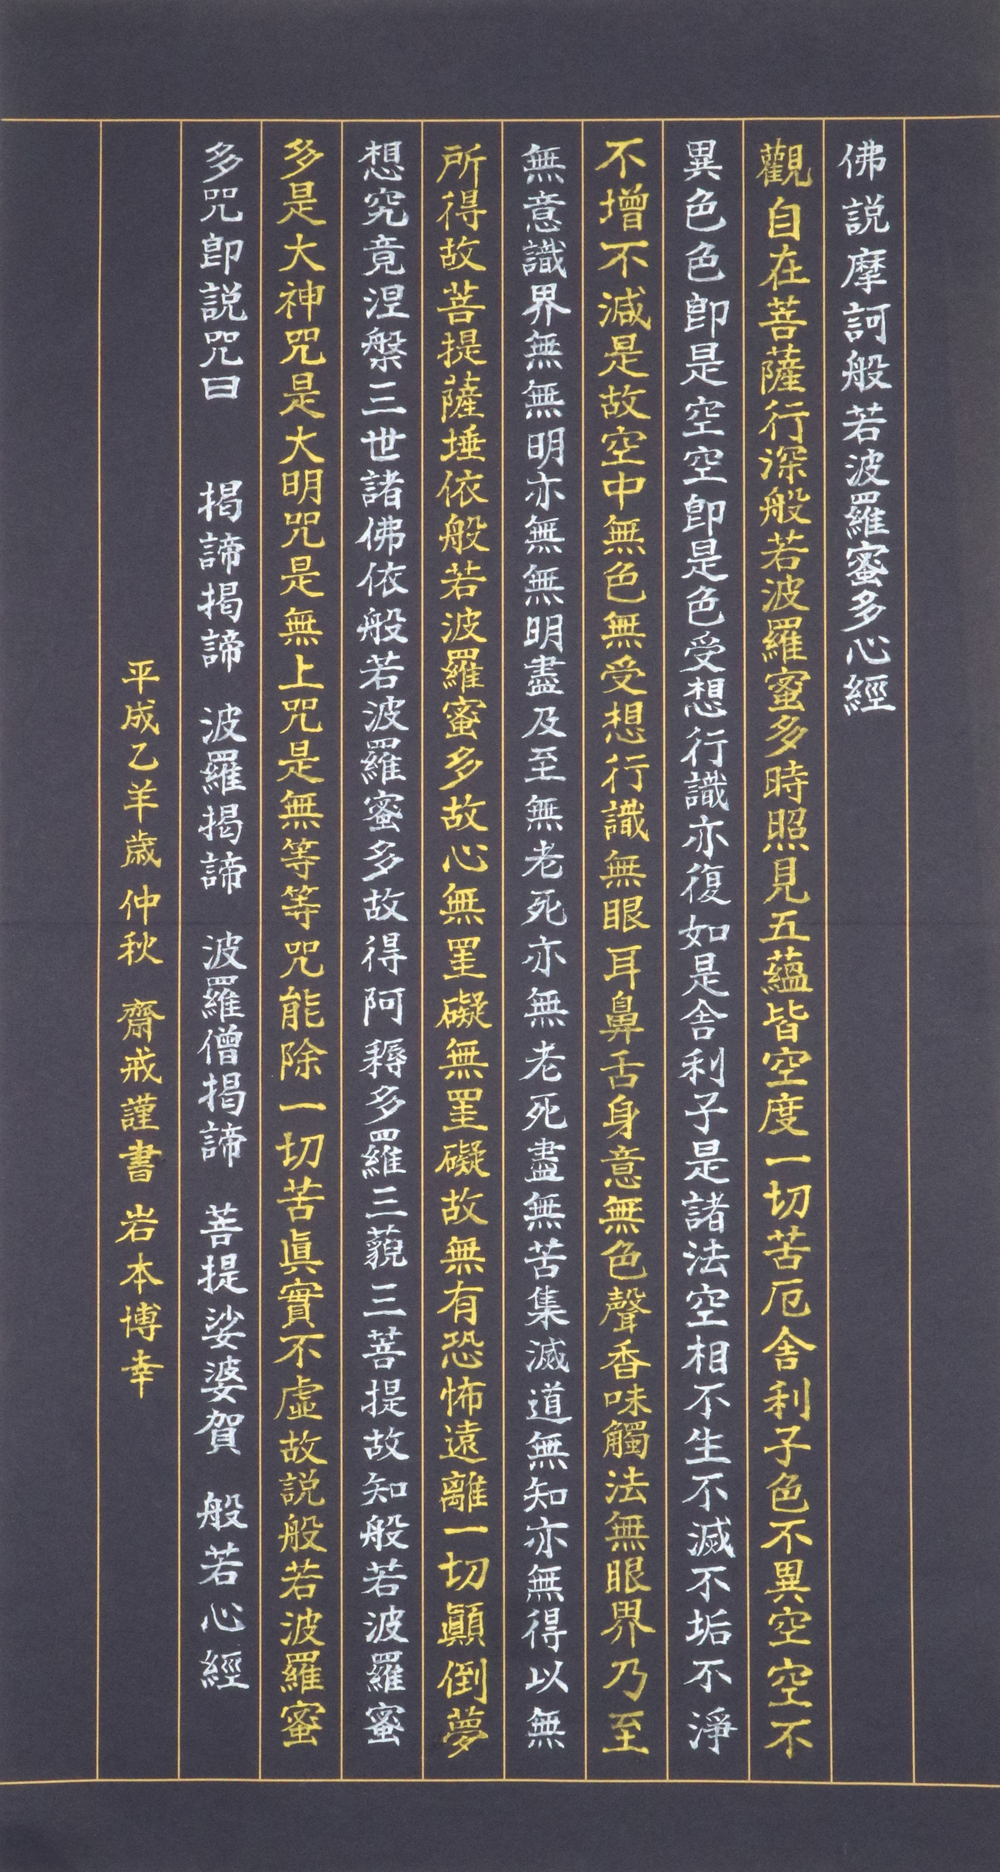 佛説摩訶般若波羅蜜多心經
觀自在菩薩行深般若波羅蜜多時照見五蘊皆空度一切苦厄舍利子色不異空空不
異色色卽是空空卽是色受想行識亦復如是舍利子是諸法空相不生不滅不垢不淨
不增不減是故空中無色無受想行識無眼耳鼻舌身意無色聲香味觸法無眼界乃至
無意識界無無明亦無無明盡及至無老死亦無老死盡無苦集滅道無知亦無得以無
所得故菩提薩埵依般若波羅蜜多故心無罣礙無罣礙故無有恐怖遠離一切顚倒夢
想究竟涅槃三世諸佛依般若波羅蜜多故得阿耨多羅三藐三菩提故知般若波羅蜜
多是大神咒是大明咒是無上咒是無等等咒能除一切苦眞實不虛故説般若波羅蜜
多咒卽説咒曰 揭諦揭諦 波羅揭諦 波羅僧揭諦 菩提娑婆賀 般若心經
平成乙羊歳仲秋 齋戒謹書 岩本博幸